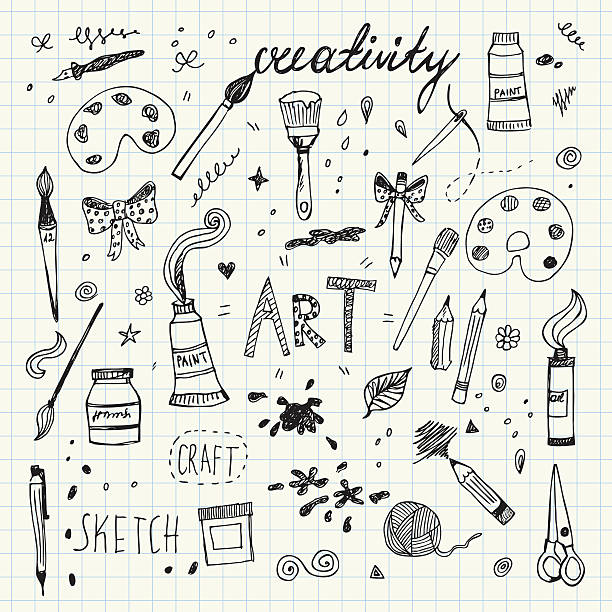 creativity
PAINT
12
ART
PAINT
oil
CRAFT
SKETCH